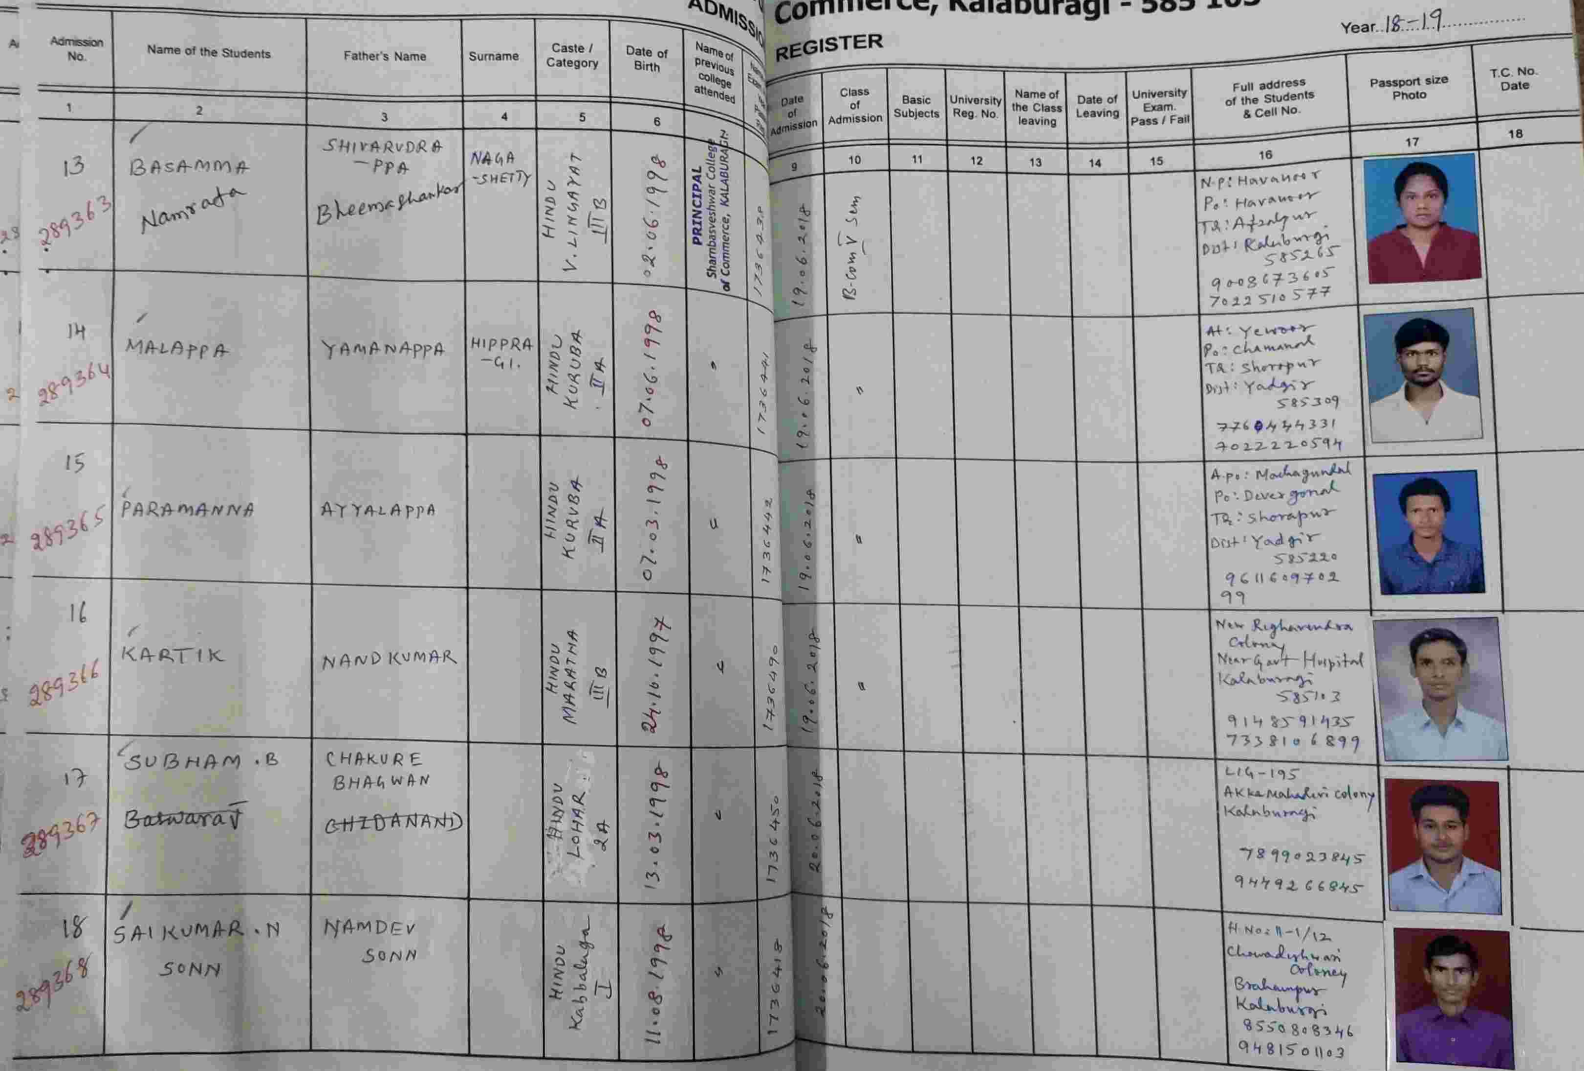 ADMISSION
Commerce, Kalaburagi - 585 103
REGISTER
Year 18-19
Admission No.
Name of the Students
Father's Name
Surname
Caste / Category
Date of Birth
Name of previous college attended
Date of Admission
Class of Admission
Basic Subjects
University Reg. No.
Name of the Class leaving
Date of Leaving
University Exam. Pass / Fail
Full address of the Students & Cell No.
Passport size Photo
T.C. No. Date
1 2 3 4 5 6 9 10 11 12 13 14 15 16 17 18
13
289363
BASAMMA
Namrata
SHIVARUDRA
-PPA
Bheemashankar
NAGA
-SHETTY
HINDU
V. LINGAYAT
III B
02.06.1998
PRINCIPAL
Sharnbasveshwar College
of Commerce, KALABURAGI
19.06.2018
B.Com V Sem
N.P: Havanoor
Po: Havanoor
TQ: Afzalpur
Dist: Kalaburgi
585265
9008673605
7022510577
14
289364
MALAPPA
YAMANAPPA
HIPPRA
-GI.
HINDU
KURUBA
II A
07.06.1998
"
1736441
19.06.2018
"
At: Yewoor
Po: Chamanal
TQ: Shorapur
Dist: Yadgir
585309
7760444331
7022220594
15
289365
PARAMANNA
AYYALAPPA
HINDU
KURUBA
II A
07.03.1998
"
1736442
19.06.2018
"
A.po: Machagundal
Po: Devergonal
TQ: Shorapur
Dist: Yadgir
585220
9611609702
99
16
289366
KARTIK
NANDKUMAR
HINDU
MARATHA
III B
24.10.1997
"
1736490
19.06.2018
"
New Righavendra
Colony
Near Govt Hospital
Kalaburagi
585103
9148591435
7338106899
17
289367
SUBHAM . B
CHAKURE
BHAGWAN
CHIDANAND
HINDU
LOHAR
2A
13.03.1998
"
1736450
20.06.2018
LIG-195
Akka Mahadevi colony
Kalaburagi
7899023845
9449266845
18
289368
SAIKUMAR . N
SONN
NAMDEV
SONN
HINDU
Kabbaluga
I
11.08.1998
"
1736418
20.06.2018
H.No: 11-1/12
Chowadeshwari
Coloney
Brahampur
Kalaburgi
8550808346
9481501103